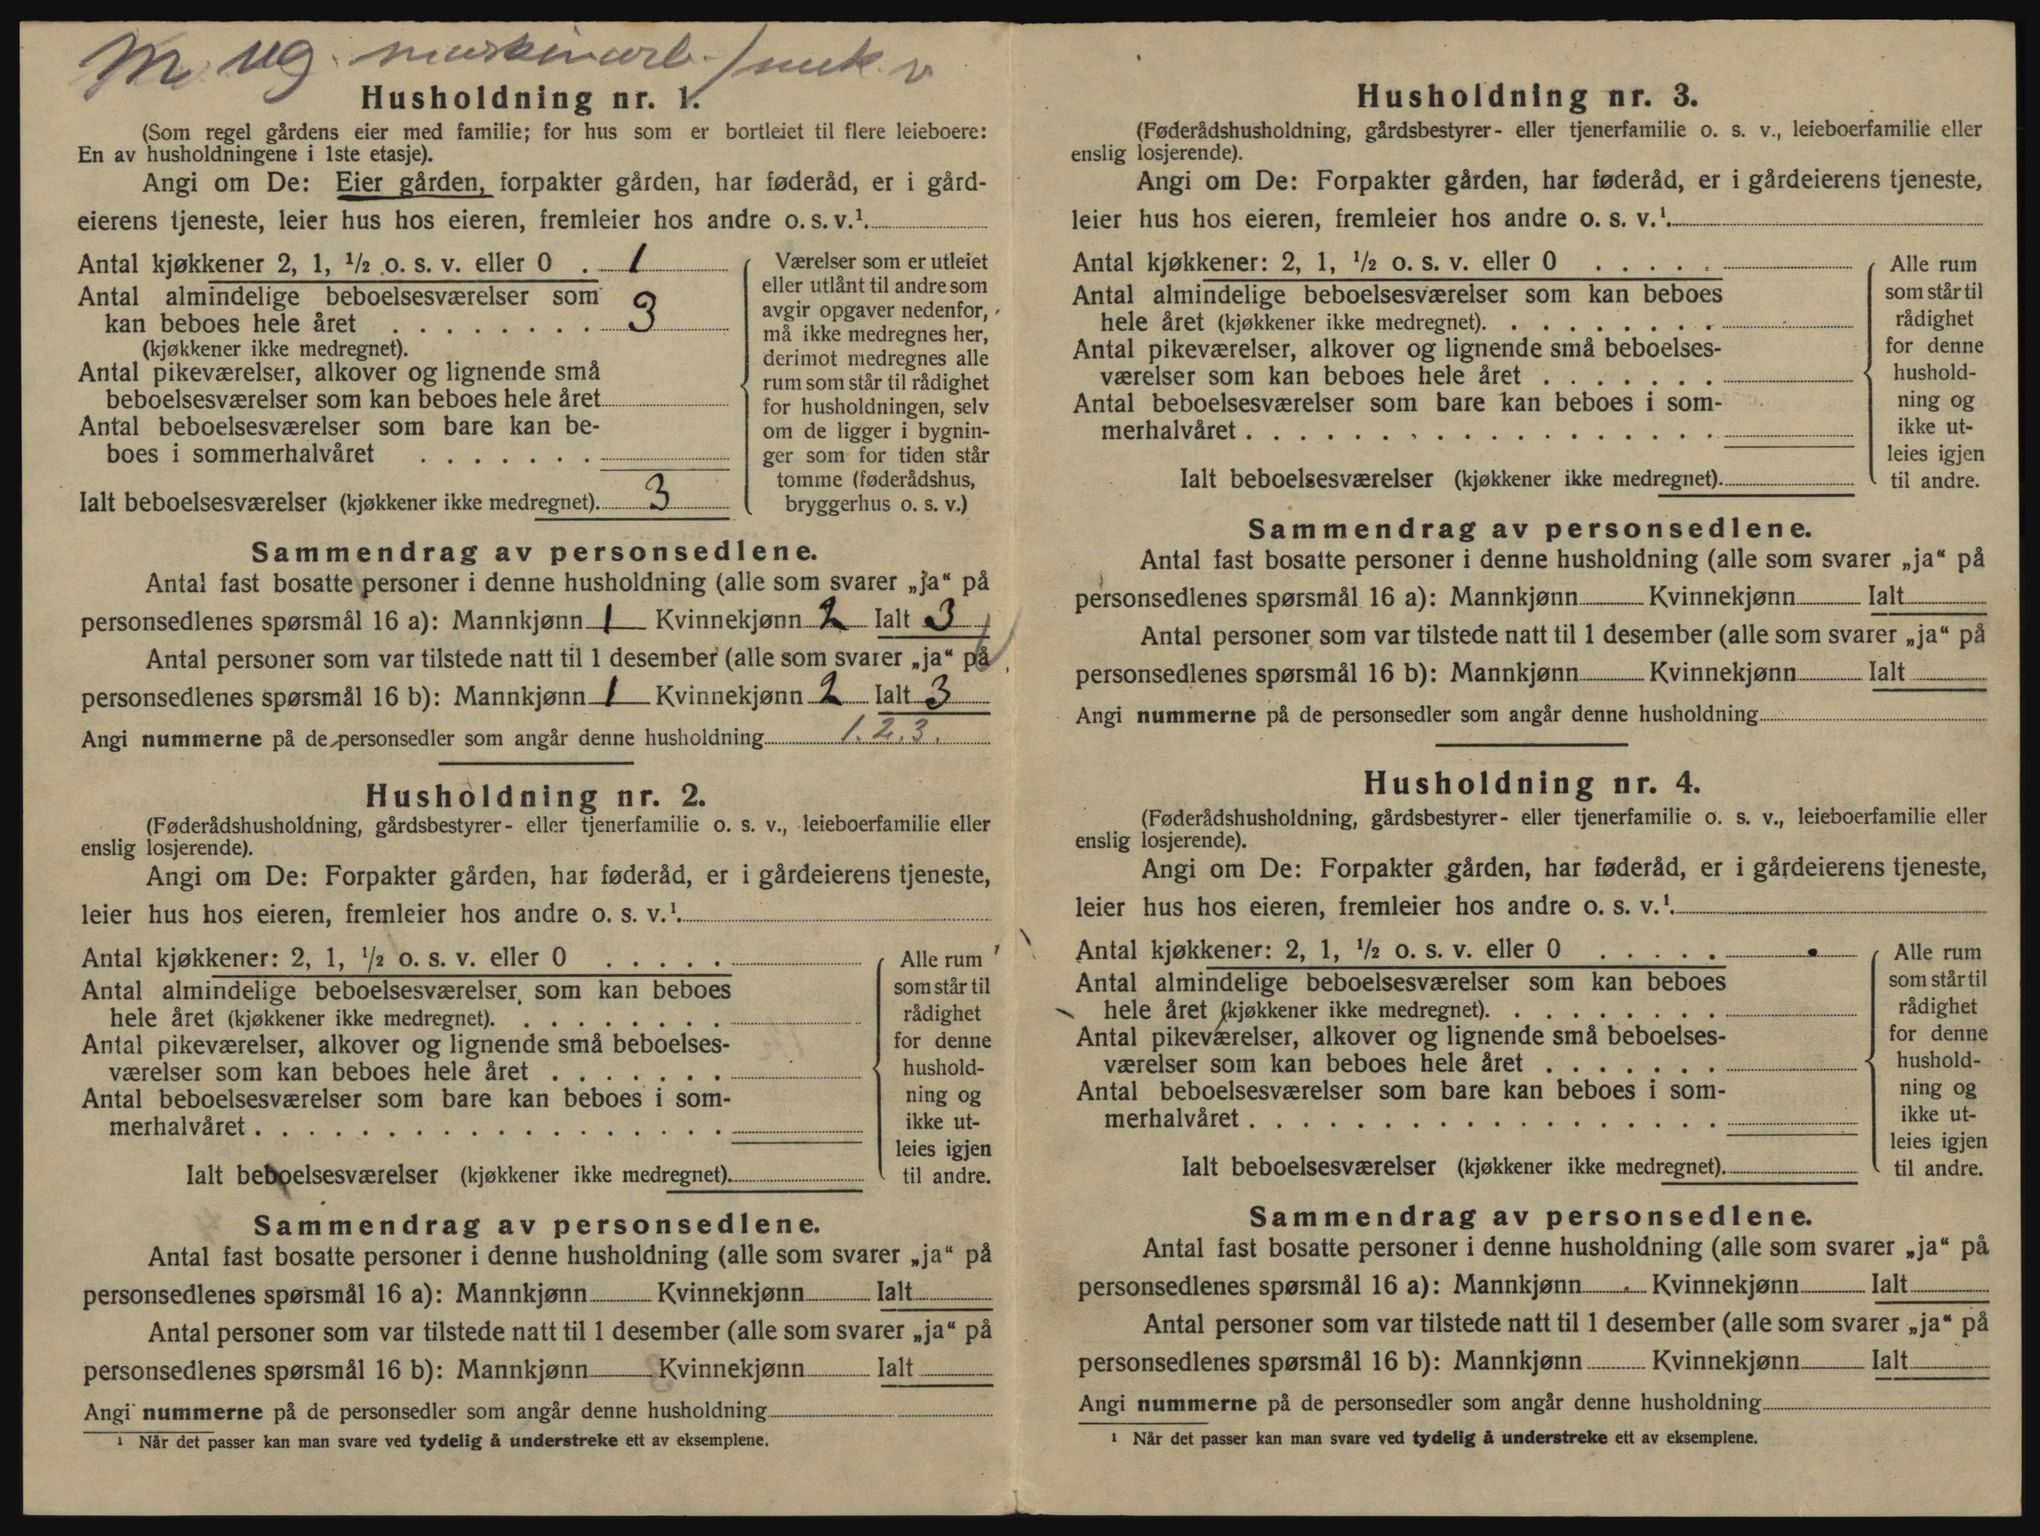 m. ug. maskinarb. / mek. v.
Husholdning nr. 1.
(Som regel gårdens eier med familie; for hus som er bortleiet til flere leieboere:
En av husholdningene i 1ste etasje).
Angi om De: Eier gården, forpakter gården, har føderåd, er i gård-
eierens tjeneste, leier hus hos eieren, fremleier hos andre o. s. v.¹.
Antal kjøkkener 2, 1, ½ o. s. v. eller 0 . 1
Antal almindelige beboelsesværelser som
kan beboes hele året . . . . . . . . 3
(kjøkkener ikke medregnet).
Antal pikeværelser, alkover og lignende små
beboelsesværelser som kan beboes hele året
Antal beboelsesværelser som bare kan be-
boes i sommerhalvåret . . . . . . .
Ialt beboelsesværelser (kjøkkener ikke medregnet). 3
Værelser som er utleiet
eller utlånt til andre som
avgir opgaver nedenfor,
må ikke medregnes her,
derimot medregnes alle
rum som står til rådighet
for husholdningen, selv
om de ligger i bygnin-
ger som for tiden står
tomme (føderådshus,
bryggerhus o. s. v.)
Sammendrag av personsedlene.
Antal fast bosatte personer i denne husholdning (alle som svarer „ja“ på
personsedlenes spørsmål 16 a): Mannkjønn 1 Kvinnekjønn 2 Ialt 3
Antal personer som var tilstede natt til 1 desember (alle som svarer „ja“ på
personsedlenes spørsmål 16 b): Mannkjønn 1 Kvinnekjønn 2 Ialt 3
Angi nummerne på de personsedler som angår denne husholdning 1. 2. 3.
Husholdning nr. 2.
(Føderådshusholdning, gårdsbestyrer- eller tjenerfamilie o. s. v., leieboerfamilie eller
enslig losjerende).
Angi om De: Forpakter gården, har føderåd, er i gårdeierens tjeneste,
leier hus hos eieren, fremleier hos andre o. s. v.¹.
Antal kjøkkener: 2, 1, ½ o. s. v. eller 0 . . . . .
Antal almindelige beboelsesværelser som kan beboes
hele året (kjøkkener ikke medregnet). . . . . . . . .
Antal pikeværelser, alkover og lignende små beboelses-
værelser som kan beboes hele året . . . . . . .
Antal beboelsesværelser som bare kan beboes i som-
merhalvåret . . . . . . . . . . . . . . . . . .
Ialt beboelsesværelser (kjøkkener ikke medregnet).
Alle rum
som står til
rådighet
for denne
hushold-
ning og
ikke ut-
leies igjen
til andre.
Sammendrag av personsedlene.
Antal fast bosatte personer i denne husholdning (alle som svarer „ja“ på
personsedlenes spørsmål 16 a): Mannkjønn Kvinnekjønn Ialt
Antal personer som var tilstede natt til 1 desember (alle som svarer „ja“ på
personsedlenes spørsmål 16 b): Mannkjønn Kvinnekjønn Ialt
Angi nummerne på de personsedler som angår denne husholdning
¹ Når det passer kan man svare ved tydelig å understreke ett av eksemplene.
Husholdning nr. 3.
(Føderådshusholdning, gårdsbestyrer- eller tjenerfamilie o. s. v., leieboerfamilie eller
enslig losjerende).
Angi om De: Forpakter gården, har føderåd, er i gårdeierens tjeneste,
leier hus hos eieren, fremleier hos andre o. s. v.¹.
Antal kjøkkener: 2, 1, ½ o. s. v. eller 0 . . . . .
Antal almindelige beboelsesværelser som kan beboes
hele året (kjøkkener ikke medregnet). . . . . . . . .
Antal pikeværelser, alkover og lignende små beboelses-
værelser som kan beboes hele året . . . . . . .
Antal beboelsesværelser som bare kan beboes i som-
merhalvåret . . . . . . . . . . . . . . . . . .
Ialt beboelsesværelser (kjøkkener ikke medregnet).
Alle rum
som står til
rådighet
for denne
hushold-
ning og
ikke ut-
leies igjen
til andre.
Sammendrag av personsedlene.
Antal fast bosatte personer i denne husholdning (alle som svarer „ja“ på
personsedlenes spørsmål 16 a): Mannkjønn Kvinnekjønn Ialt
Antal personer som var tilstede natt til 1 desember (alle som svarer „ja“ på
personsedlenes spørsmål 16 b): Mannkjønn Kvinnekjønn Ialt
Angi nummerne på de personsedler som angår denne husholdning
Husholdning nr. 4.
(Føderådshusholdning, gårdsbestyrer- eller tjenerfamilie o. s. v., leieboerfamilie eller
enslig losjerende).
Angi om De: Forpakter gården, har føderåd, er i gårdeierens tjeneste,
leier hus hos eieren, fremleier hos andre o. s. v.¹.
Antal kjøkkener: 2, 1, ½ o. s. v. eller 0 . . . . .
Antal almindelige beboelsesværelser som kan beboes
hele året (kjøkkener ikke medregnet). . . . . . . . .
Antal pikeværelser, alkover og lignende små beboelses-
værelser som kan beboes hele året . . . . . . .
Antal beboelsesværelser som bare kan beboes i som-
merhalvåret . . . . . . . . . . . . . . . . . .
Ialt beboelsesværelser (kjøkkener ikke medregnet).
Alle rum
som står til
rådighet
for denne
hushold-
ning og
ikke ut-
leies igjen
til andre.
Sammendrag av personsedlene.
Antal fast bosatte personer i denne husholdning (alle som svarer „ja“ på
personsedlenes spørsmål 16 a): Mannkjønn Kvinnekjønn Ialt
Antal personer som var tilstede natt til 1 desember (alle som svarer „ja“ på
personsedlenes spørsmål 16 b): Mannkjønn Kvinnekjønn Ialt
Angi nummerne på de personsedler som angår denne husholdning
¹ Når det passer kan man svare ved tydelig å understreke ett av eksemplene.